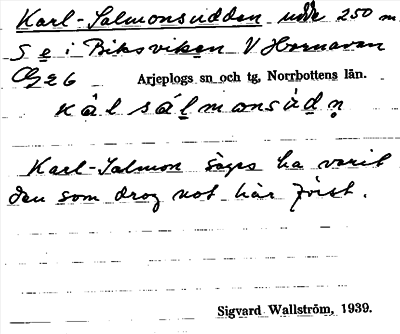 Karl-Salmonsudden udde 250 m
S e i Biksviken V Hornavan
Cg 26 Arjeplogs sn och tg, Norrbottens län.
kàlsálmonsùdn̥
Karl-Salmon säges ha varit
den som drog not här först.
Sigvard Wallström, 1939.